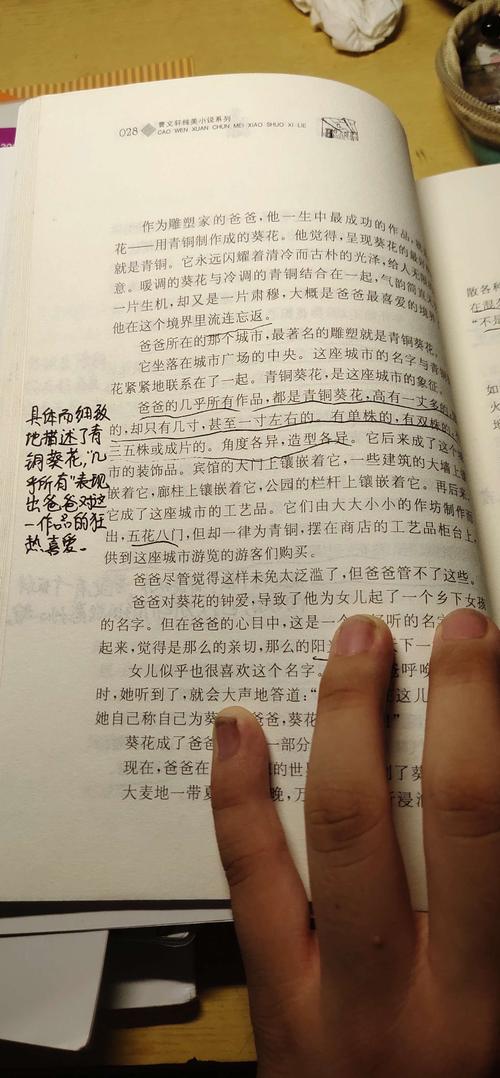 028
曹文轩纯美小说系列
CAO WEN XUAN CHUN MEI XIAO SHUO XI LIE
作为雕塑家的爸爸，他一生中最成功的作品，
花——用青铜制作成的葵花。他觉得，呈现葵花的最
就是青铜。它永远闪耀着清冷而古朴的光泽，给人无限
意。暖调的葵花与冷调的青铜结合在一起，气韵简直
一片生机，却又是一片肃穆，大概是爸爸最喜爱的境界
他在这个境界里流连忘返。
爸爸所在的那个城市，最著名的雕塑就是青铜葵花。
它坐落在城市广场的中央。这座城市的名字与青铜
花紧紧地联系在了一起。青铜葵花，是这座城市的象征。
爸爸的几乎所有作品，都是青铜葵花，高有一丈多的
的，却只有几寸，甚至一寸左右的。有单株的，有双株的
三五株或成片的。角度各异，造型各异。它后来成了这
市的装饰品。宾馆的大门上镶嵌着它，一些建筑的大墙上
嵌着它，廊柱上镶嵌着它，公园的栏杆上镶嵌着它。再后来
它成了这座城市的工艺品。它们由大大小小的作坊制作而
出，五花八门，但却一律为青铜，摆在商店的工艺品柜台上，
供到这座城市游览的游客们购买。
爸爸尽管觉得这样未免太泛滥了，但爸爸管不了这些。
爸爸对葵花的钟爱，导致了他为女儿起了一个乡下女孩
的名字。但在爸爸的心目中，这是一个 好听的名字
起来，觉得是那么的亲切，那么的阳 天下一
女儿似乎也很喜欢这个名字。 爸呼唤
时，她听到了，就会大声地答道：“ 在这儿
她自己称自己为葵 爸爸，葵花 ”
葵花成了爸爸 一部分
现在，爸爸在 的世界 到了葵
大麦地一带夏 晚，万 浸
具体而细致
地描述了青
铜葵花，“几
乎所有”表现
出爸爸对这
一作品的狂
热喜爱。
散各种
在
“不是
如
火
地